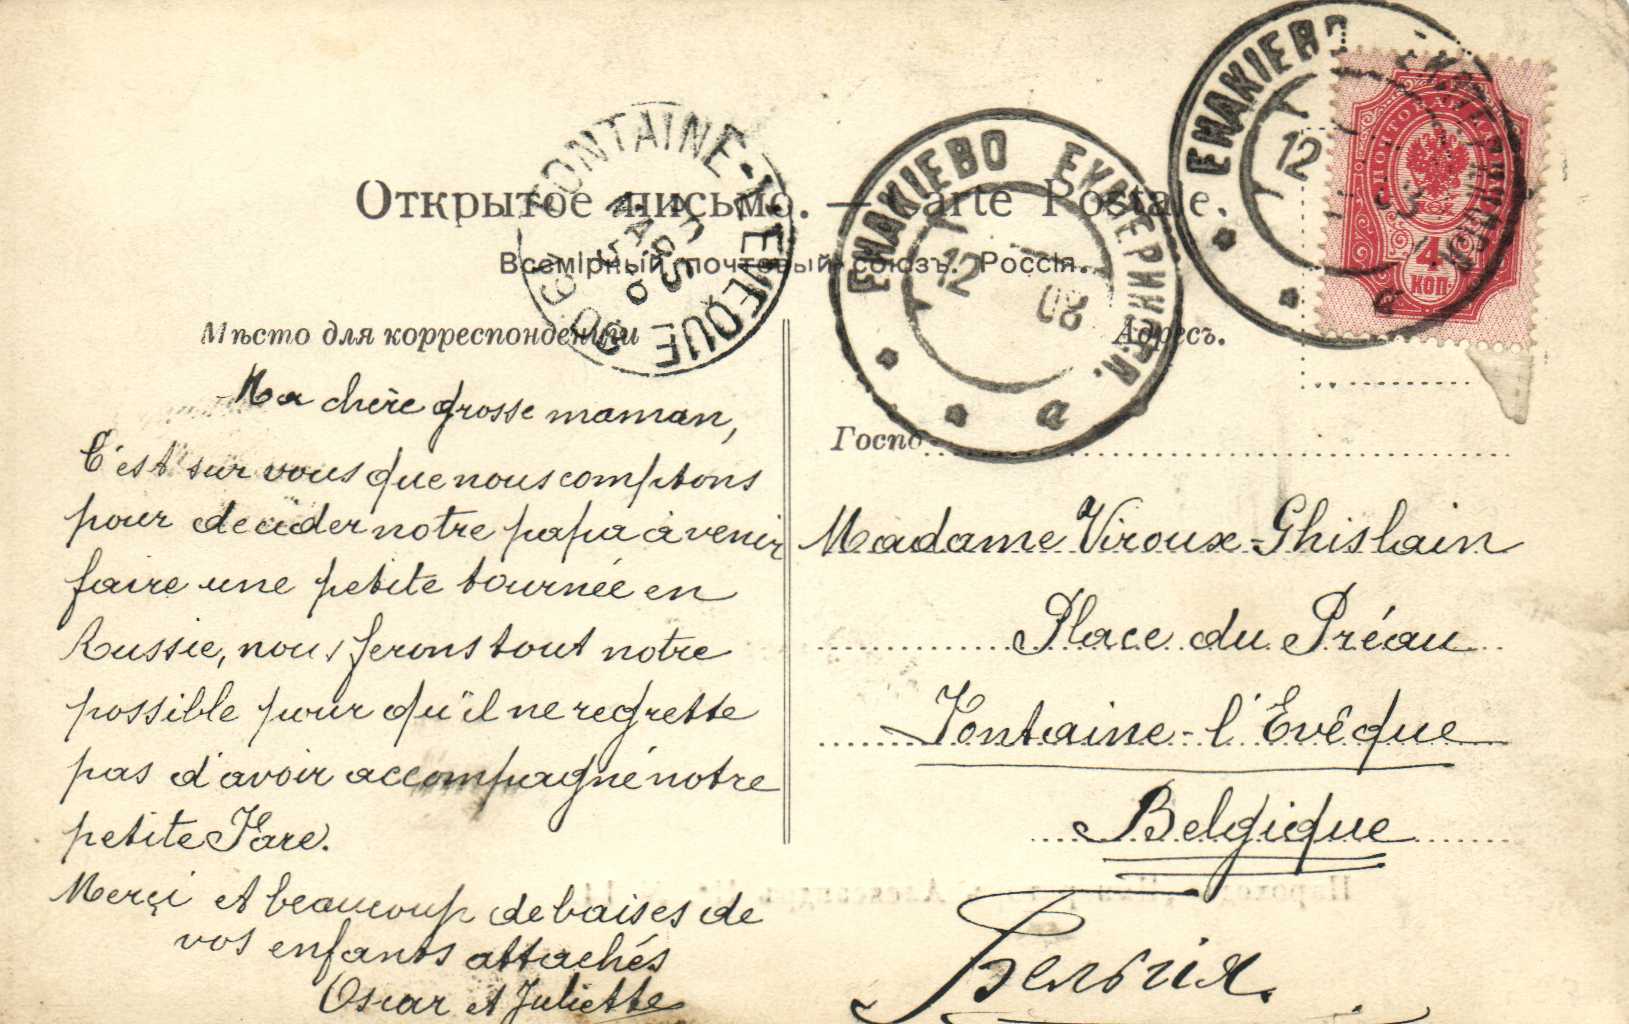 Открытое письмо. — Carte Postale.
Всемірный почтовый союзъ. Россія.
FONTAINE-L'EVEQUE
ЕНАКІЕВО ЕКАТЕРИНОСЛ.
12
08
а
ЕНАКІЕВО
12
а
ПОЧТОВАЯ МАРКА
4
КОП.
Мѣсто для корреспонденціи
Адресъ.
Ma chère grosse maman,
C'est sur vous que nous comptons
pour décider notre papa à venir
faire une petite tournée en
Russie, nous ferons tout notre
possible pour qu'il ne regrette
pas d'avoir accompagné notre
petite Fare.
Merçi et beaucoup de baises de
vos enfants attachés
Oscar et Juliette
Госпо
Madame Viroux-Ghislain
Place du Préau
Fontaine-l'Evêque
Belgique
Бельгія.